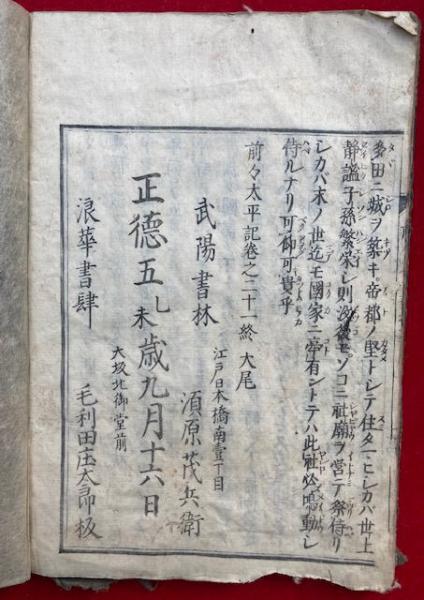 多田ニ城ヲ築キ。帝都ノ堅トシテ住タマヒシカバ世上
静謐子孫繁栄シ則没後モソコニ社廟ヲ営テ祭侍リ
シカバ末ノ世迄モ國家ニ事有ントテハ此社必鳴動シ
侍ルナリ可仰可貴乎
前々太平記巻之二十一終 大尾
江戸日本橋南壹丁目
武陽書林 須原茂兵衛
正德五乙未歳九月十六日
大坂北御堂前
浪華書肆 毛利田庄太郎板